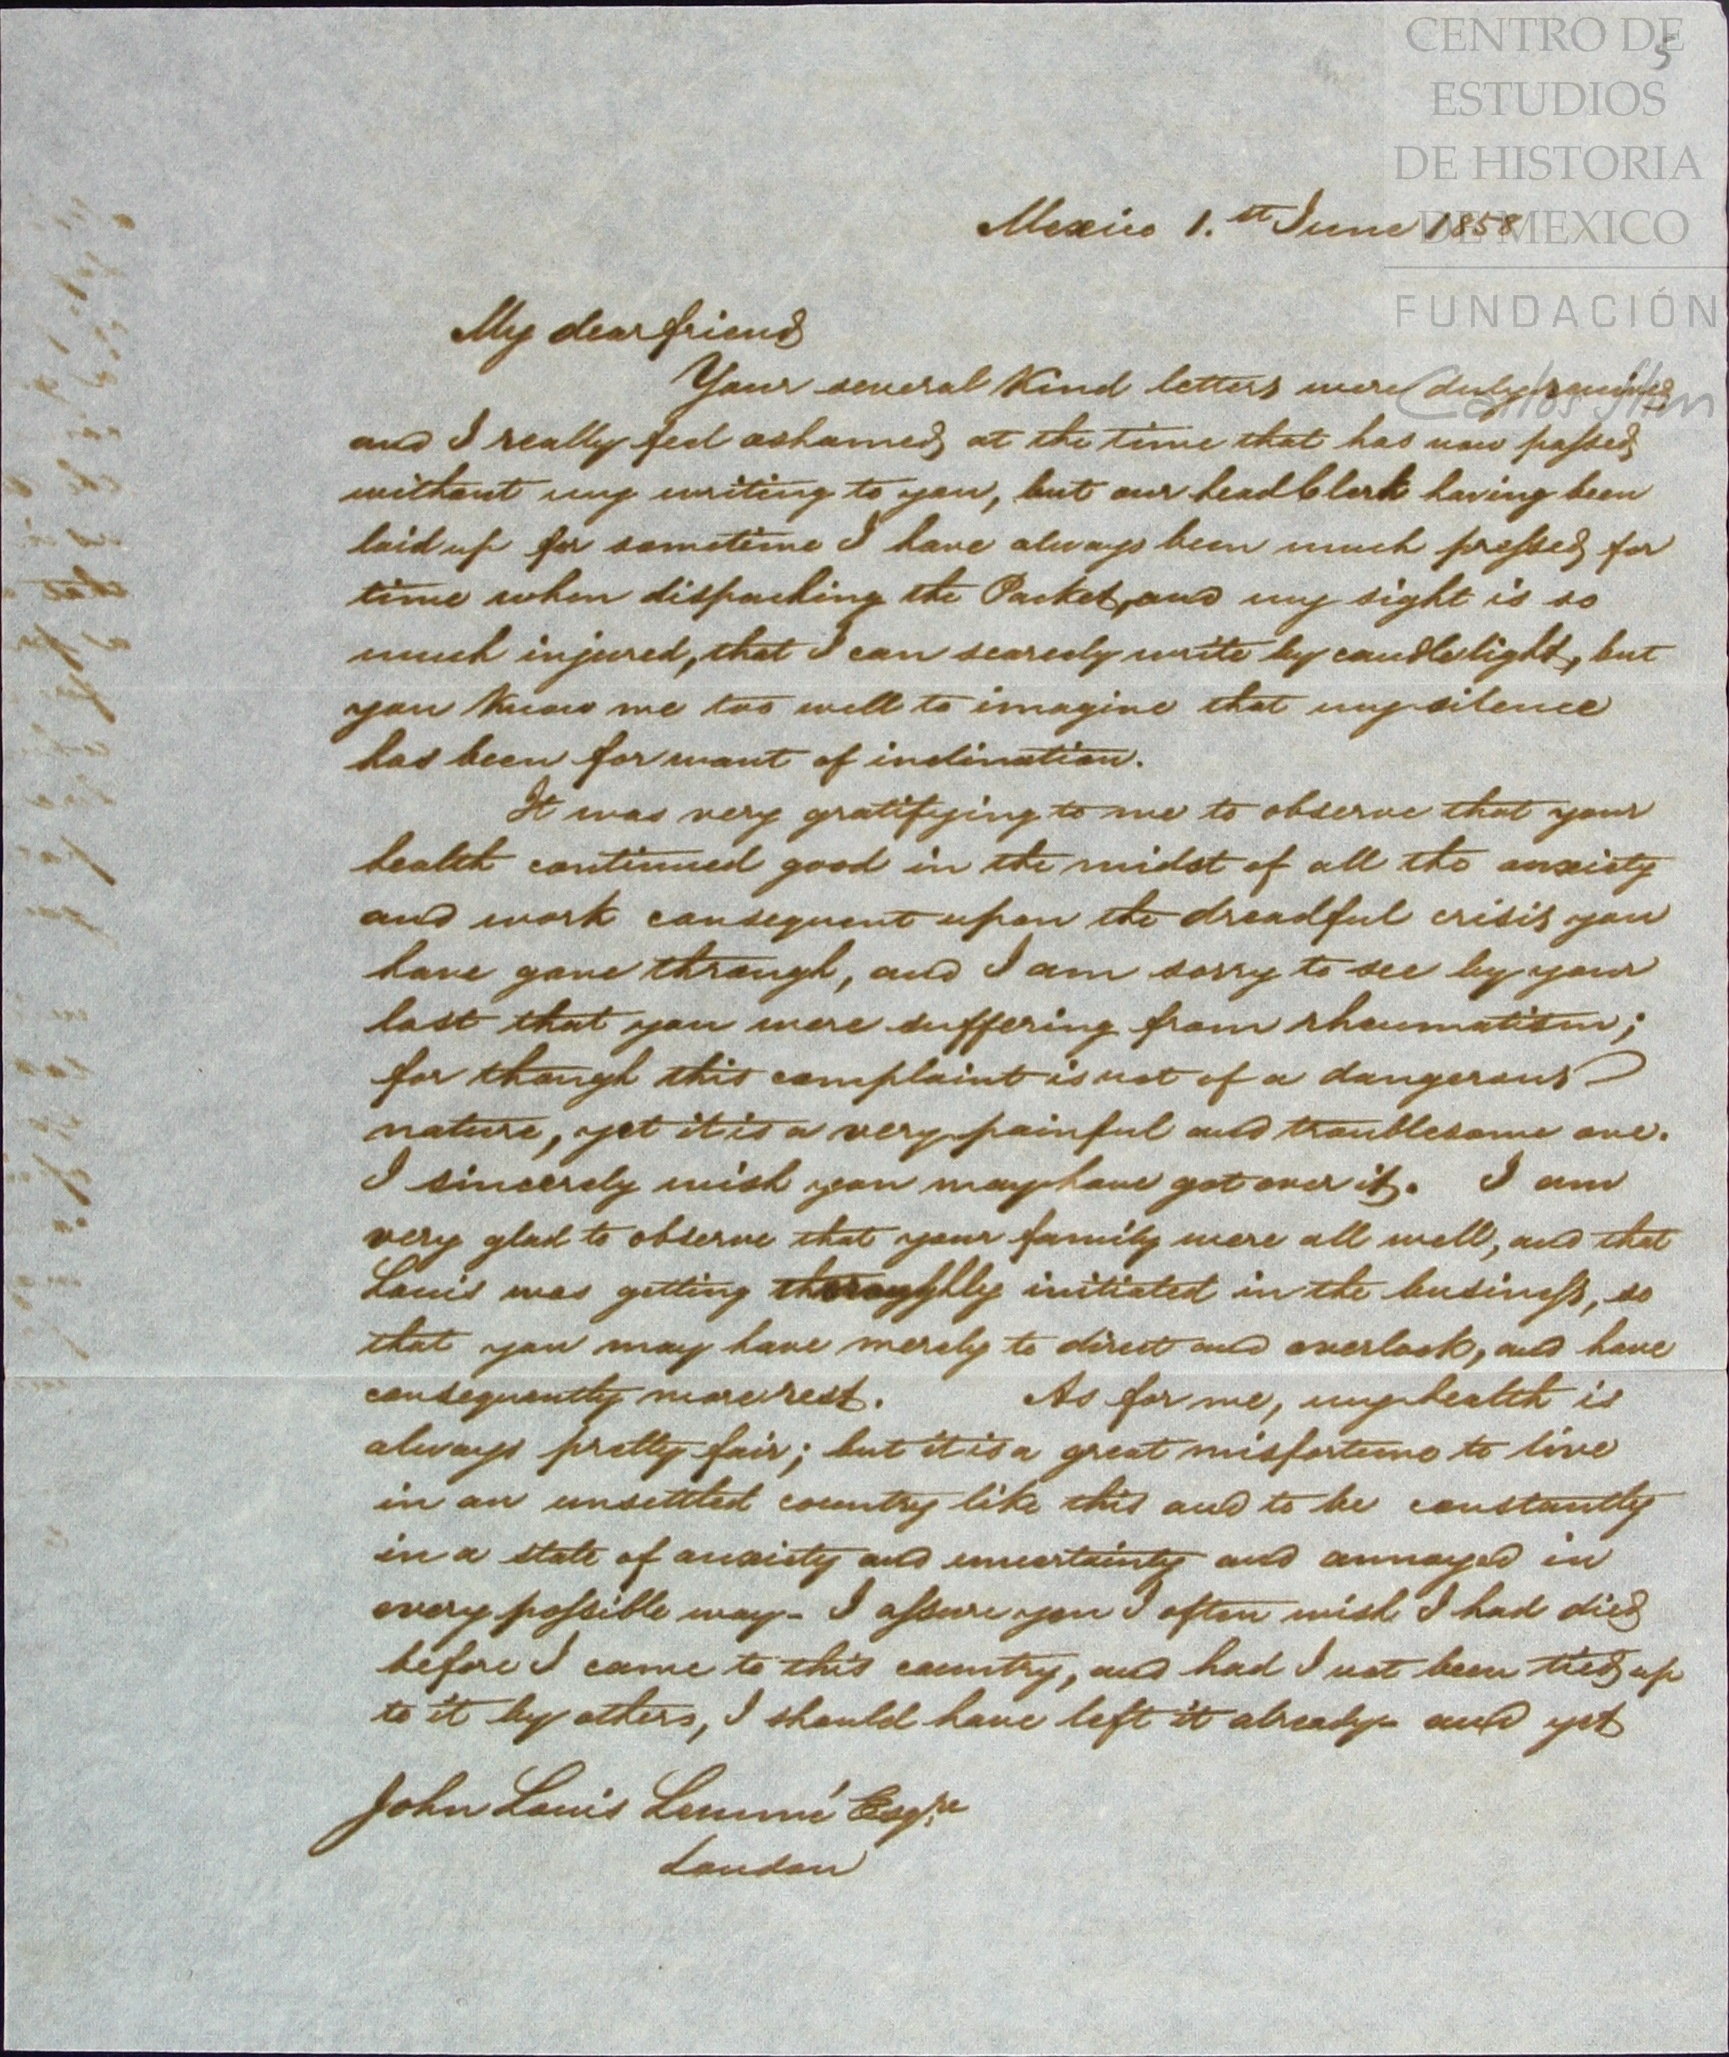 CENTRO DE
ESTUDIOS
DE HISTORIA
DE MEXICO
FUNDACIÓN
Carlos Slim
5
Mexico 1.st June 1858
My dear friend
Your several kind letters were duly received
and I really feel ashamed at the time that has now passed
without my writing to you, but our head Clerk having been
laid up for sometime I have always been much pressed for
time when dispaching the Packet, and my sight is so
much injured, that I can scarcely write by candlelight, but
you know me too well to imagine that my silence
has been for want of inclination.
It was very gratifying to me to observe that your
health continued good in the midst of all the anxiety
and work consequent upon the dreadful crisis you
have gone through, and I am sorry to see by your
last that you were suffering from rheumatism;
for though this complaint is not of a dangerous
nature, yet it is a very painful and troublesome one.
I sincerely wish you may have got over it. I am
very glad to observe that your family were all well, and that
Louis was getting thoroughly initiated in the business, so
that you may have merely to direct and overlook, and have
consequently more rest. As for me, my health is
always pretty fair; but it is a great misfortune to live
in an unsettled country like this and to be constantly
in a state of anxiety and uncertainty and annoyed in
every possible way - I assure you I often wish I had died
before I came to this country, and had I not been tied up
to it by others, I should have left it already - and yet
John Louis Lemmé Esqre
London